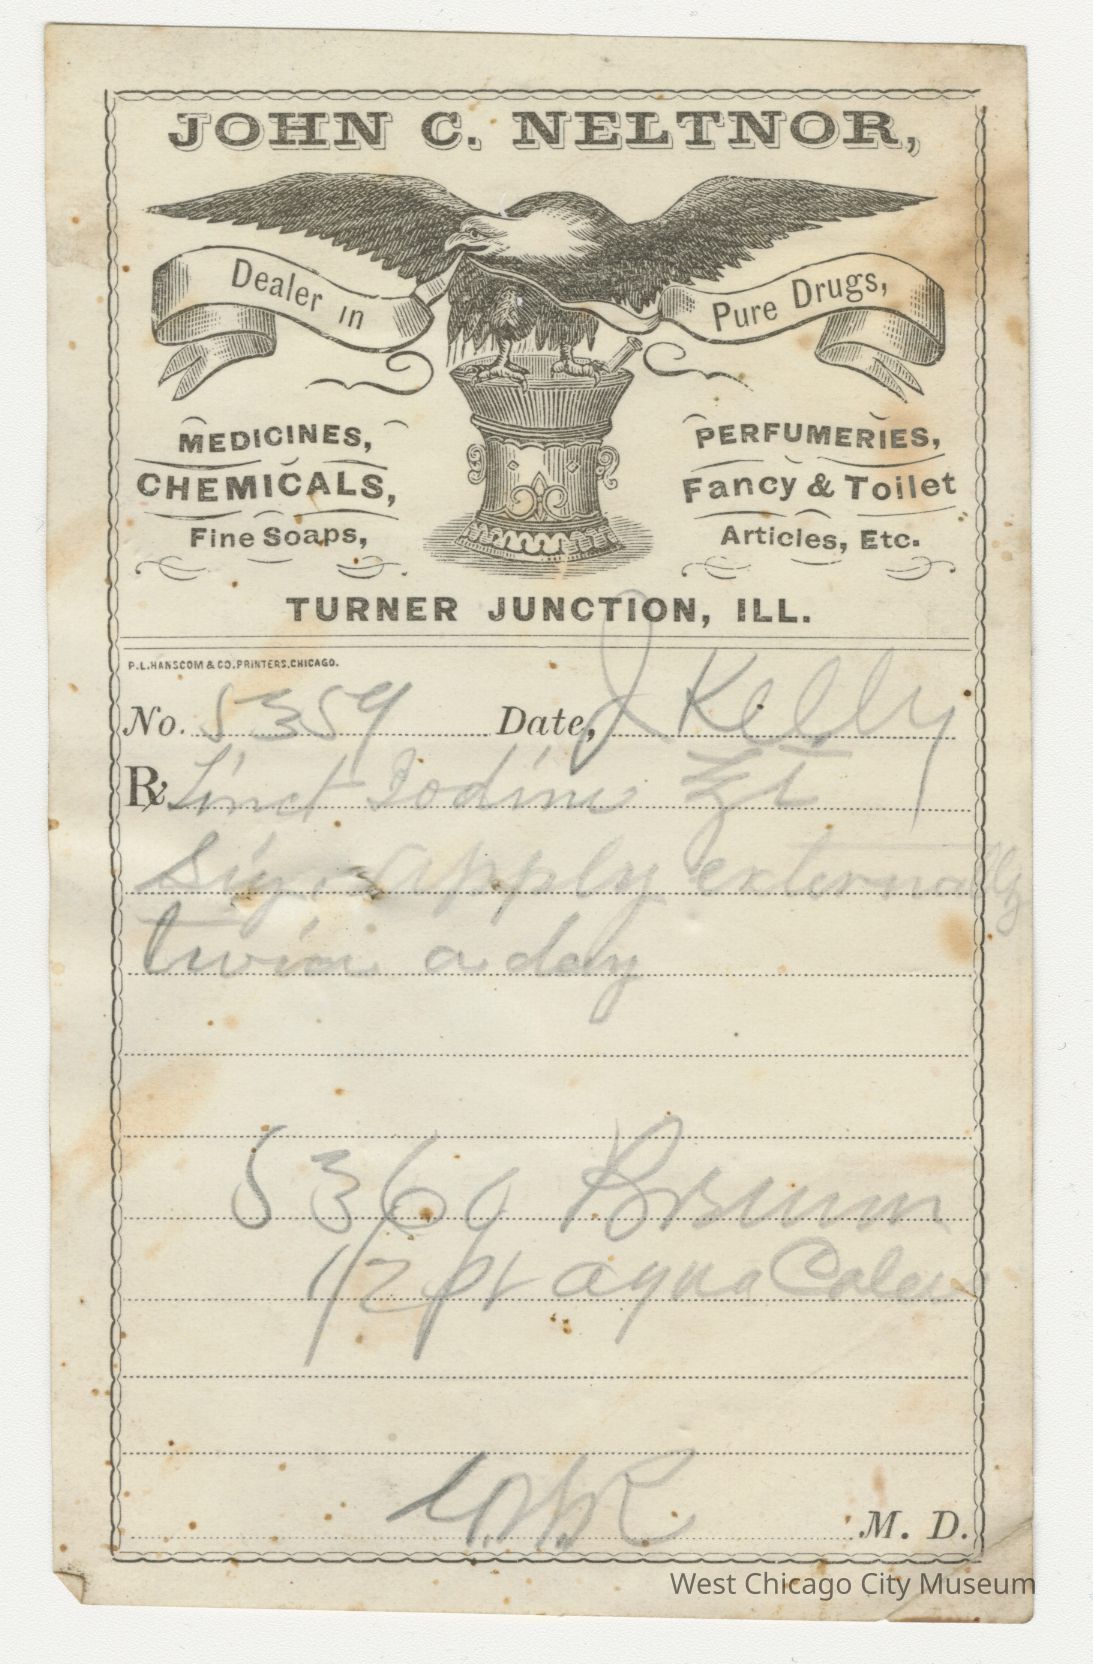 JOHN C. NELTNOR,
Dealer in Pure Drugs,
MEDICINES,
CHEMICALS,
Fine Soaps,
PERFUMERIES,
Fancy & Toilet
Articles, Etc.
TURNER JUNCTION, ILL.
P.L. HANSCOM & CO. PRINTERS. CHICAGO.
No. 5359 Date, J Kelly
Rx Tinct Iodine
Sig apply externally
twice a day
5360
1/2 pt aqua
M. D.
West Chicago City Museum